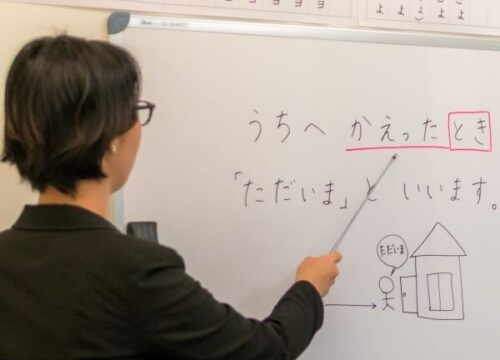 うちへ かえった とき
「ただいま」と いいます。
ただいま